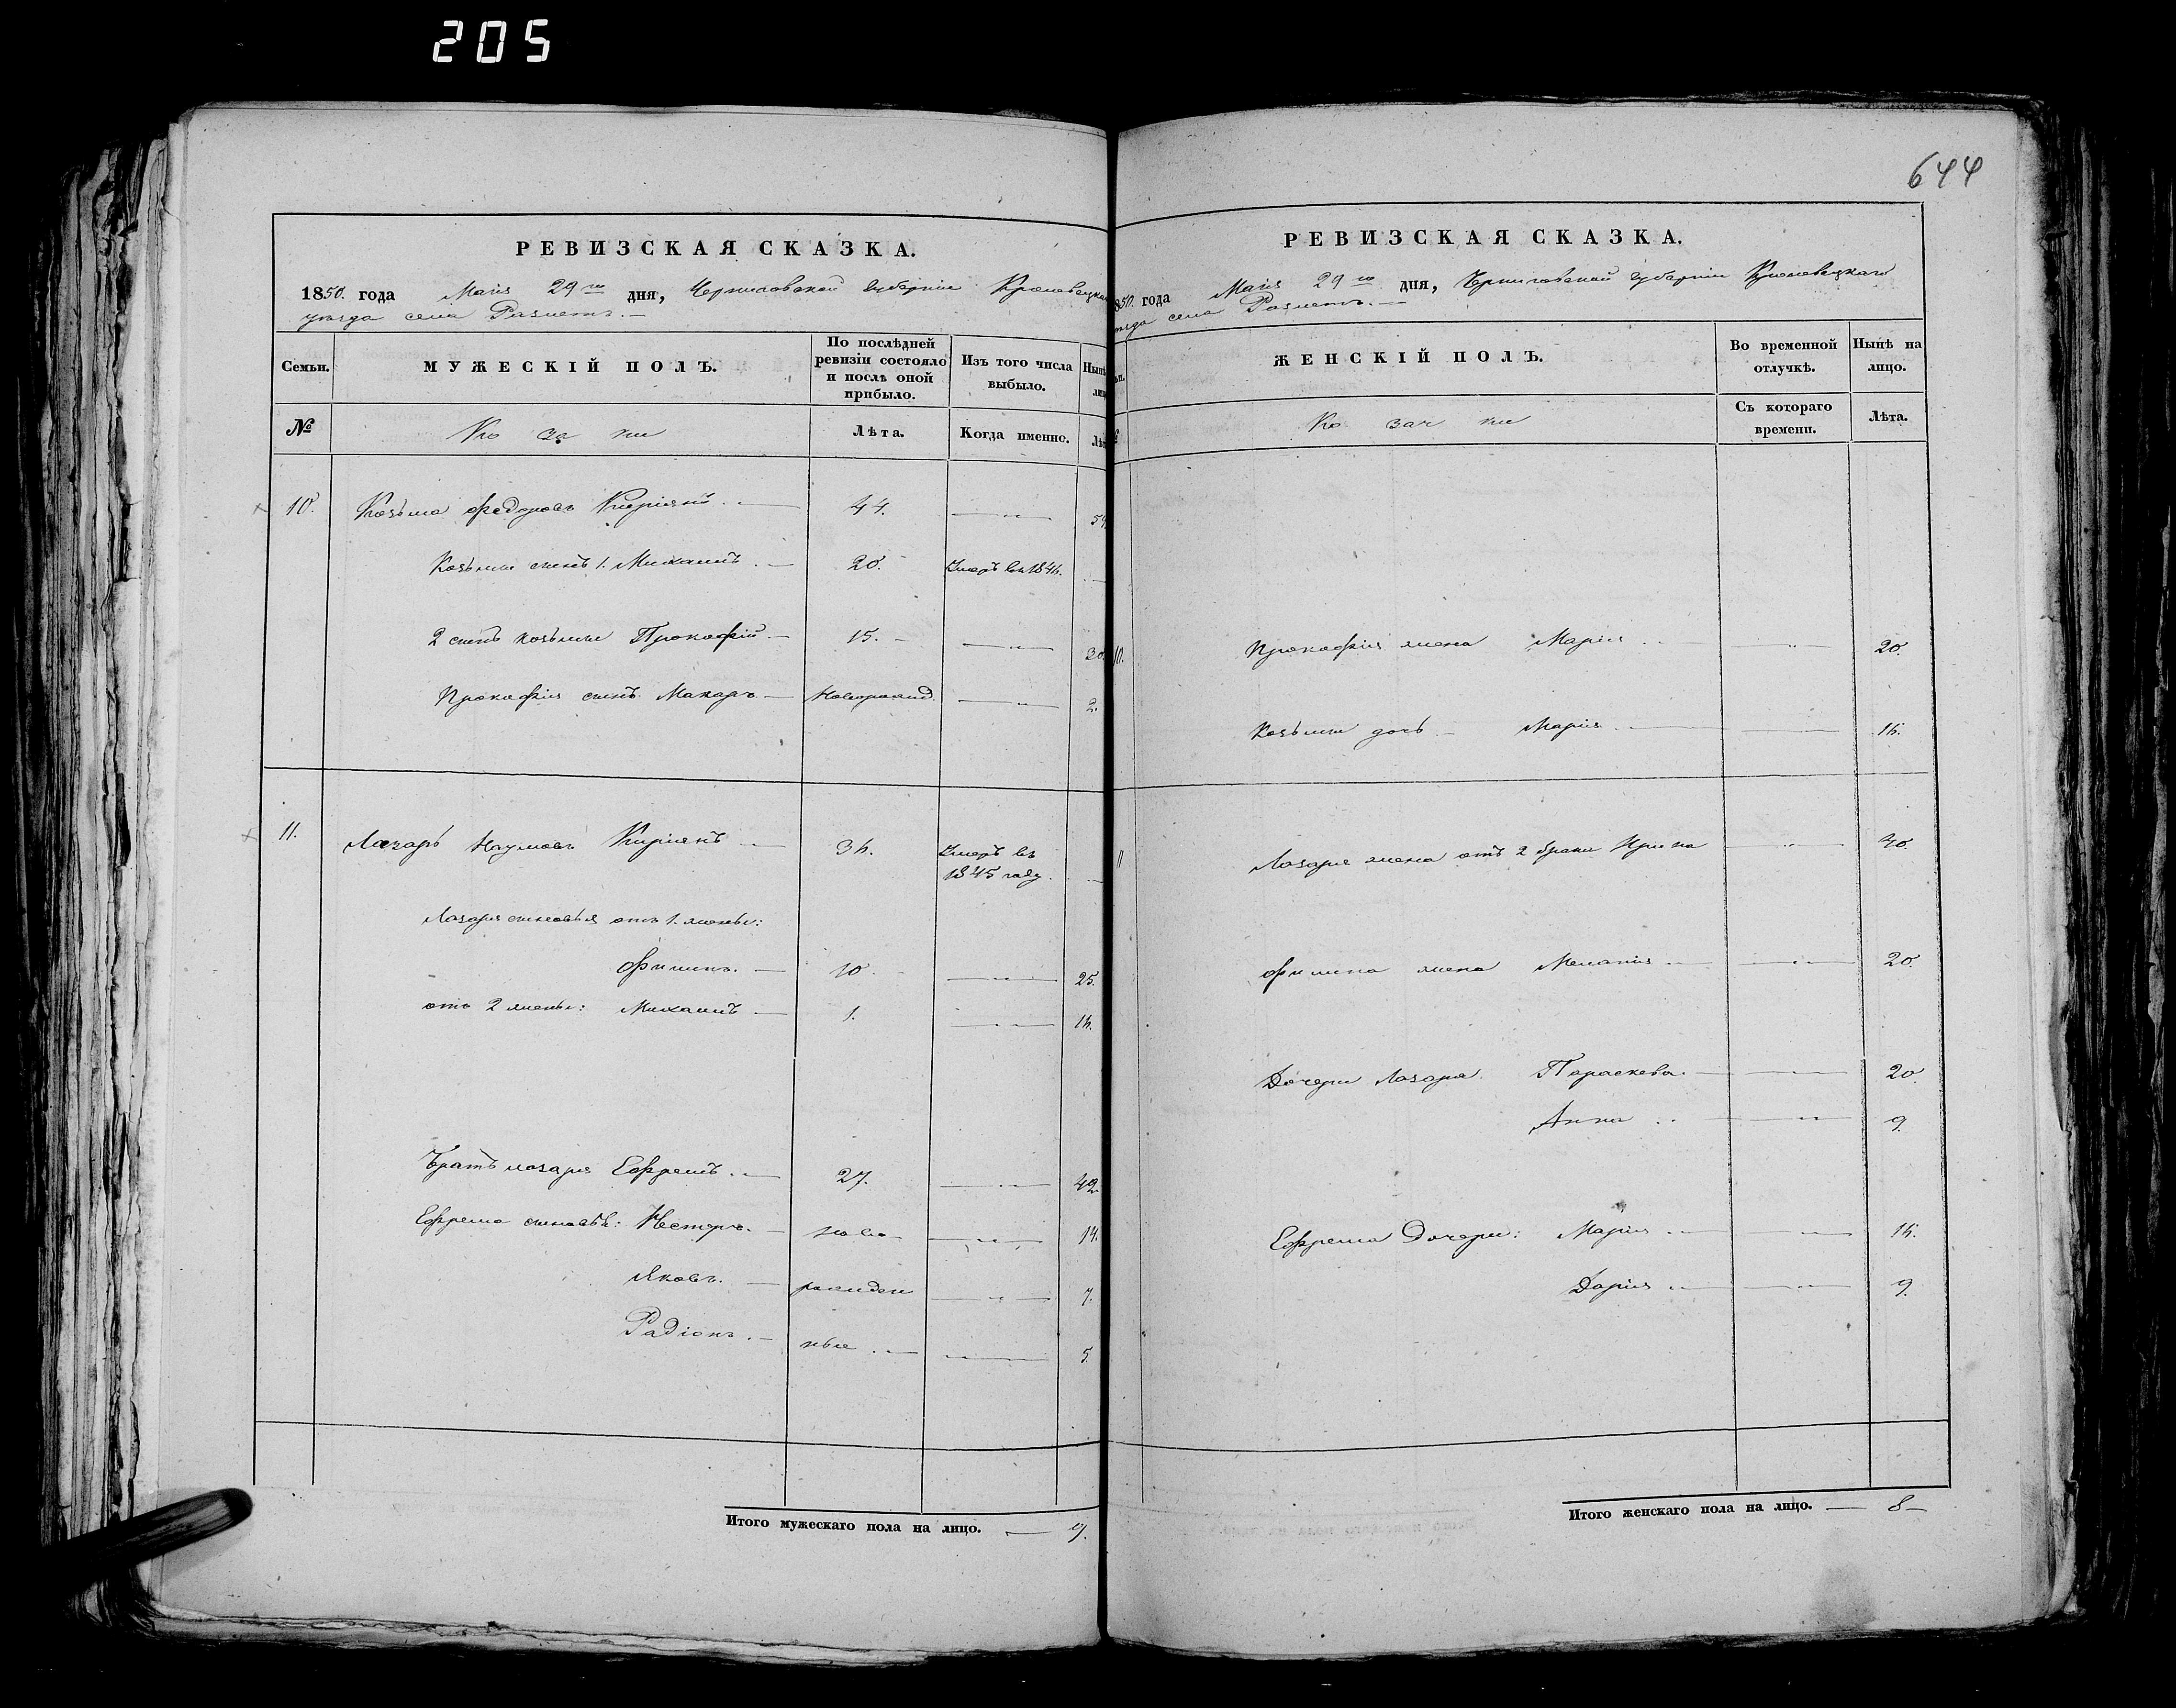 205
644
РЕВИЗСКАЯ СКАЗКА.
1850. года Маія 29го дня, Черниговской губерніи Кролевецкаго
уѣзда села Разлетъ.
Семьи. МУЖЕСКІЙ ПОЛЪ. По послѣдней ревизіи состояло и послѣ оной прибыло. Изъ того числа выбыло. Нынѣ
№ Козаки Лѣта. Когда именно. Лѣта
10. Козьма Федоровъ Киріянъ. 44. — " — 59
Козьмы сынъ 1. Михаилъ. 20. Умеръ въ 184
2 сынъ козьмы Прокофій 15. — " — 30.
Прокофія сынъ Макаръ Новорожд. — " — 2.
11. Лазарь Наумовъ Кирiянъ 36. Умеръ въ
1845 году.
Лазаря сыновья отъ 1. жены:
Филипъ. 10. — " — 25.
отъ 2 жены: Михаилъ 1. — " — 16.
Братъ лазаря Ефремъ. 27. — " — 42
Ефрема сыновья: Несторъ. ново — " — 14.
Яковъ. рожден — " — 7.
Радіонъ. ные. — " — 5.
Итого мужескаго пола на лицо. — 9.
РЕВИЗСКАЯ СКАЗКА.
1850. года Маія 29го дня, Черниговской губерніи Кролевецкаго
уѣзда села Разлетъ.
ЖЕНСКІЙ ПОЛЪ. Во временной отлучкѣ. Нынѣ на лицо.
Козачки Съ котораго времени. Лѣта.
10. Прокофія жена Марія — " — 20.
Козьмы дочь Марія. — 16.
11 Лазаря жена отъ 2 брака Ирина — " — 40.
Филипа жена Меланія — " — 20.
Дочери Лазаря Параскева. — " — 20
Анна — " — 9.
Ефрема Дочери: Марія — " — 16.
Дарія — " — 9.
Итого женскаго пола на лицо. — 8 —